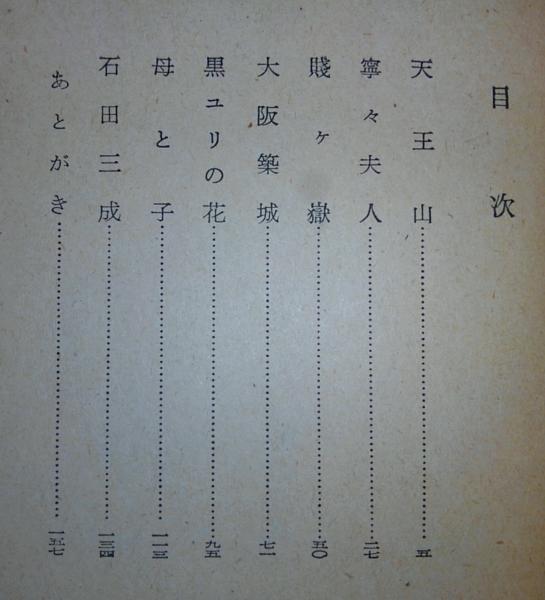 目次
天王山……五
寧々夫人……二七
賤ヶ嶽……五〇
大阪築城……七一
黒ユリの花……九五
母と子……一一三
石田三成……一三四
あとがき……一五七